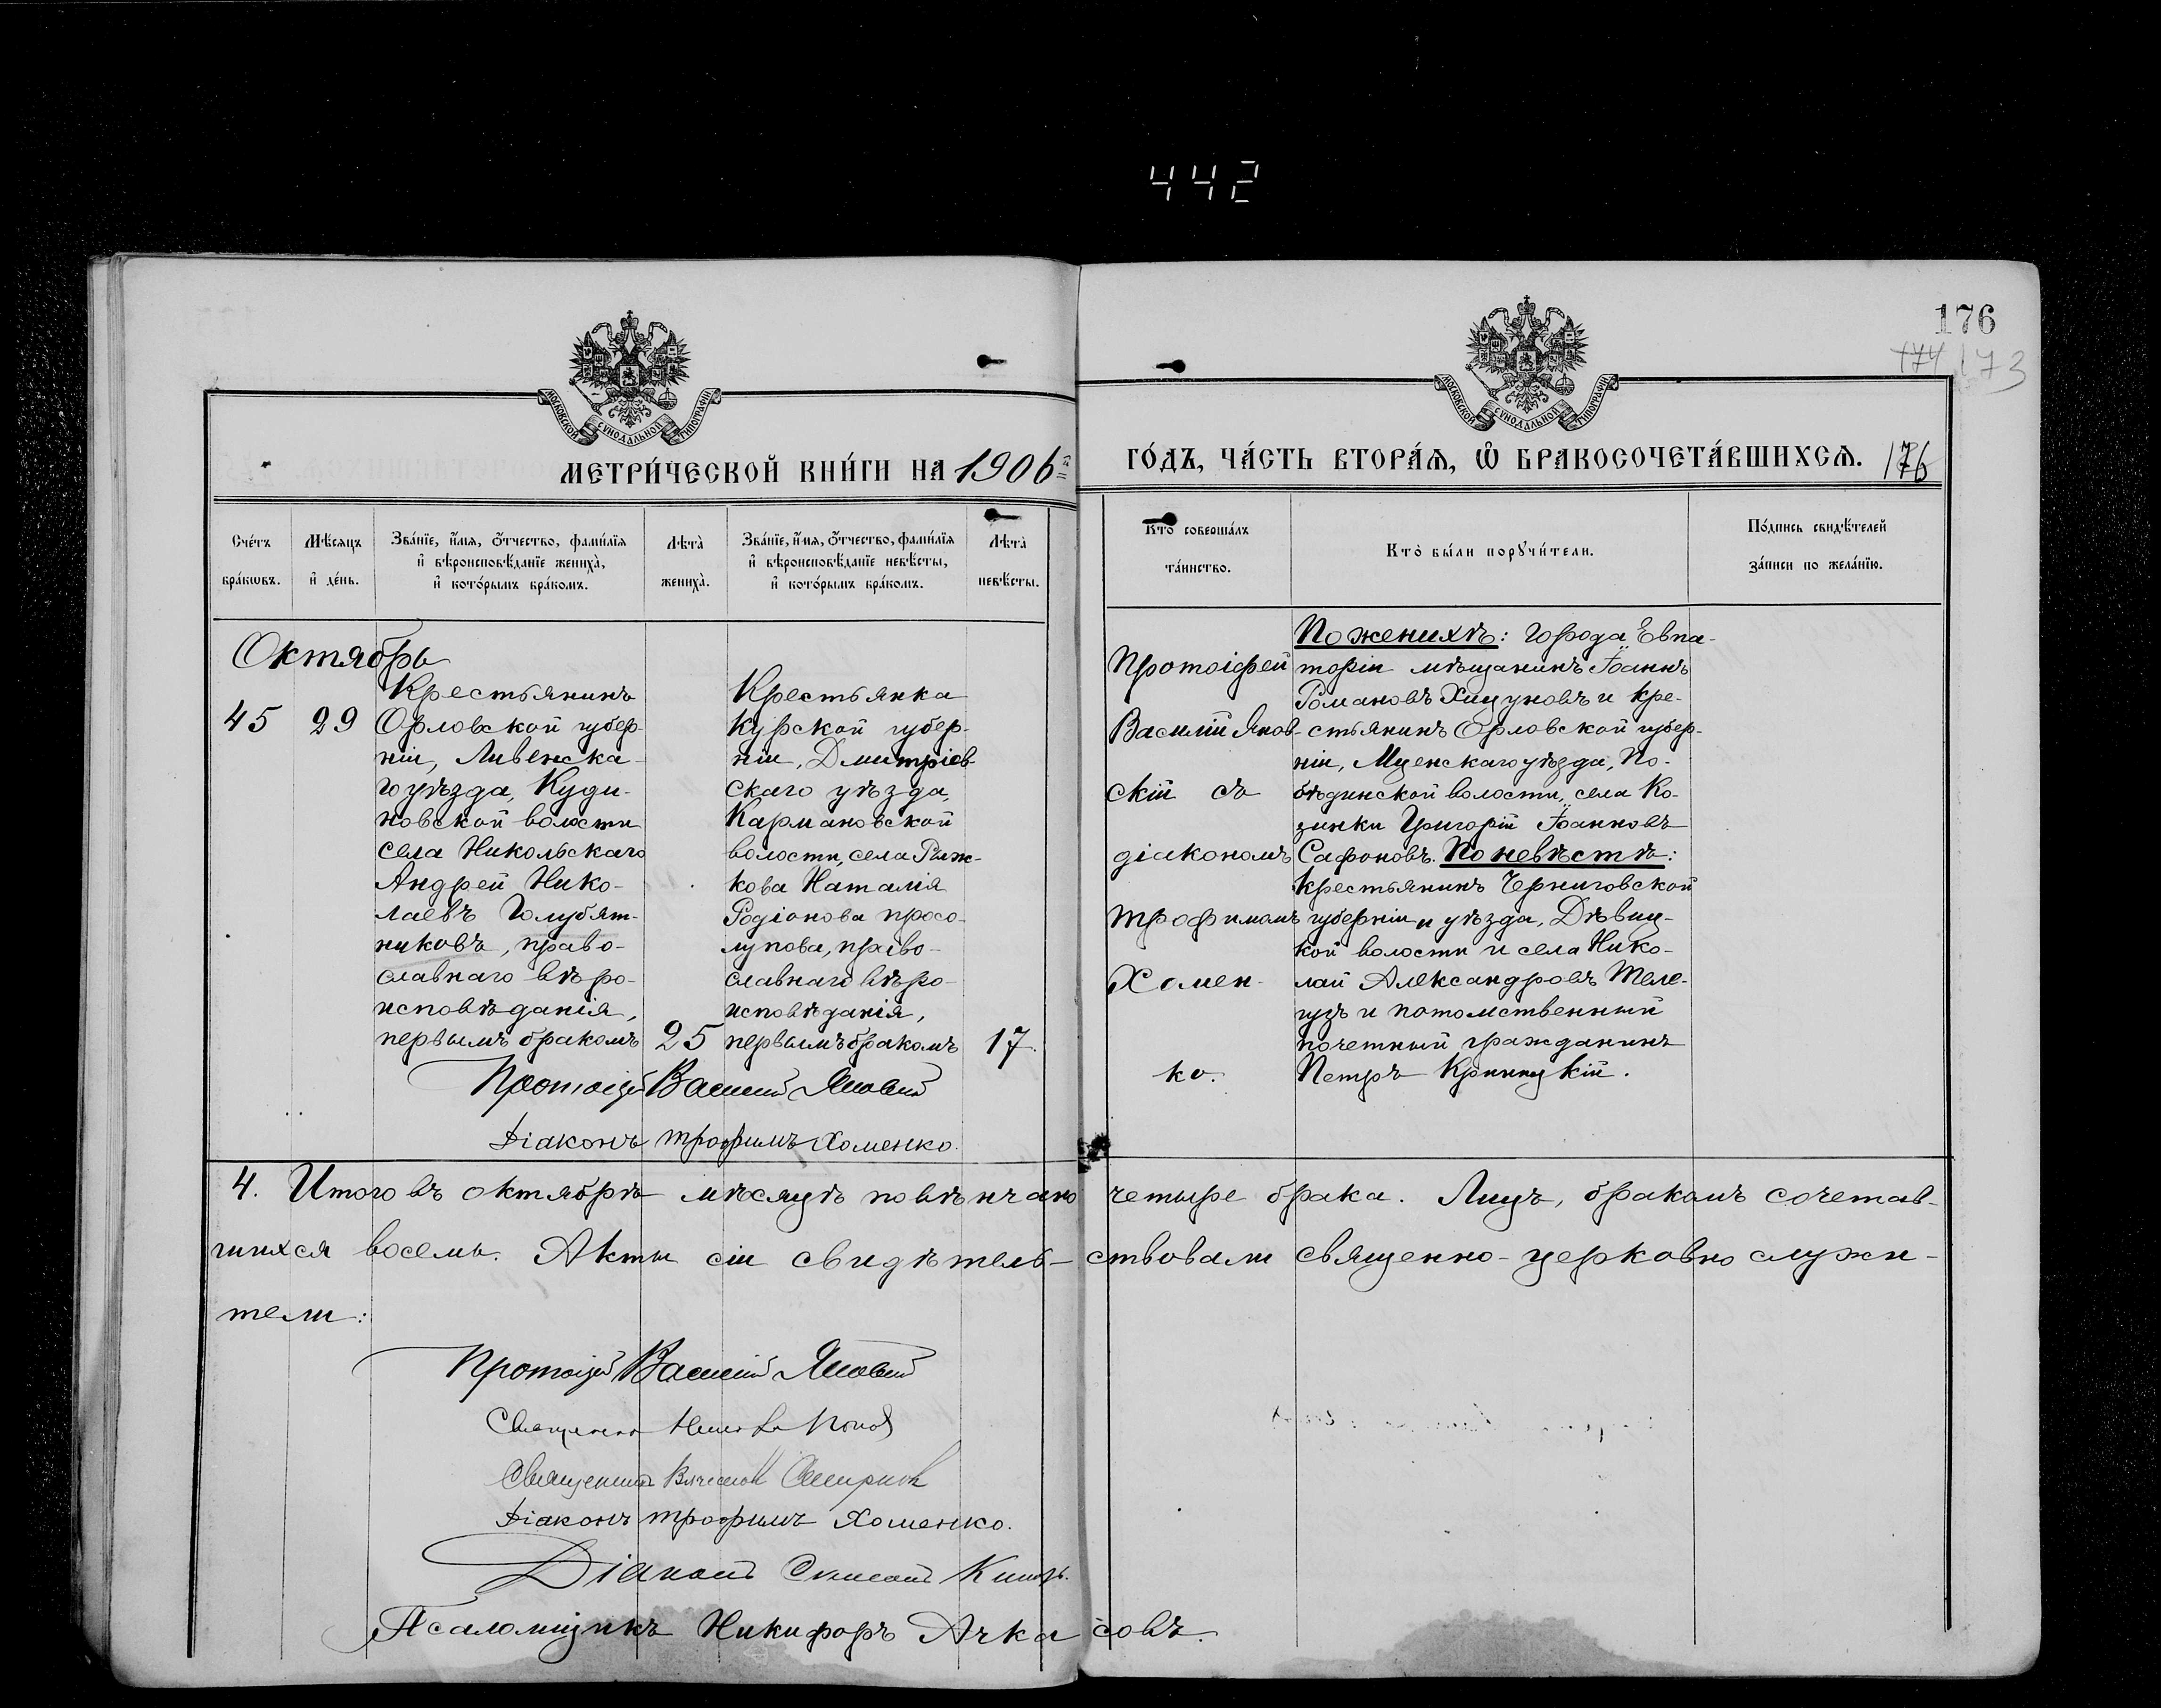 442
176
174 173
МОСКОВСКОЙ СѴНОДАЛЬНОЙ ТИПОГРАФІИ
МОСКОВСКОЙ СѴНОДАЛЬНОЙ ТИПОГРАФІИ
МЕТРИ́ЧЕСКОЙ КНИ́ГИ НА 1906й
ГО́ДЪ, ЧА́СТЬ ВТОРА́Ѧ, Ѽ БРАКОСОЧЕТА́ВШИХСѦ. 176
Сче́тъ бра́кωвъ.
Мѣ́сяцъ и҆ де́нь.
Зва́нїе, и҆́мя, ѻ҆́тчество, фами́лїя и҆ вѣроисповѣ́данїе жениха̀, и҆ кото́рымъ бра́комъ.
Лѣта̀ жениха̀.
Зва́нїе, и҆́мя, ѻ҆́тчество, фами́лїя и҆ вѣроисповѣ́данїе невѣ́сты, и҆ кото́рымъ бра́комъ.
Лѣта̀ невѣ́сты.
Кто̀ соверша́лъ та́инство.
Кто̀ бы́ли порꙋчи́тели.
По́дпись свидѣ́телей за́писи по жела́нїю.
Октябрь
45
29
Крестьянинъ
Орловской губер-
ніи, Ливенска-
го уѣзда, Куди-
новской волости
села Никольскаго
Андрей Нико-
лаевъ Голубят-
никовъ, право-
славнаго вѣро-
исповѣданія,
первымъ бракомъ
25
Крестьянка
Курской губер-
ніи, Дмитріев-
скаго уѣзда,
Кармановской
волости, села Рыж-
кова Наталія
Родіонова Просо-
лупова, право-
славнаго вѣро-
исповѣданія,
первымъ бракомъ
17.
Протоіерей
Василій Янов-
скій съ
діакономъ
Трофимомъ
Хомен-
ко.
По женихѣ: города Евпа-
торіи мѣщанинъ Іоаннъ
Романовъ Хицуновъ и кре-
стьянинъ Орловской губер-
ніи, Мценскаго уѣзда, По-
бѣдинской волости, села Ко-
зинки Григорій Іоанновъ
Сафоновъ. По невѣстѣ:
крестьянинъ Черниговской
губерніи и уѣзда, Дѣвиц-
кой волости и села Нико-
лай Александровъ Теле-
гузъ и потомственный
почетный гражданинъ
Петръ Криницкій.
Протоіерей Василій Яновскій
Діаконъ Трофимъ Хоменко.
4. Итого въ октябрѣ мѣсяцѣ повѣнчано четыре брака. Лицъ, бракомъ сочетав-
шихся восемь. Акты сіи свидѣтель-ствовали священно-церковно служи-
тели:
Протоіерей Василій Яновскій
Священникъ Попов
Священникъ Вячеслав Смирнов
Діаконъ Трофимъ Хоменко.
Діаконъ
Псаломщикъ Никифоръ Ачкасовъ.